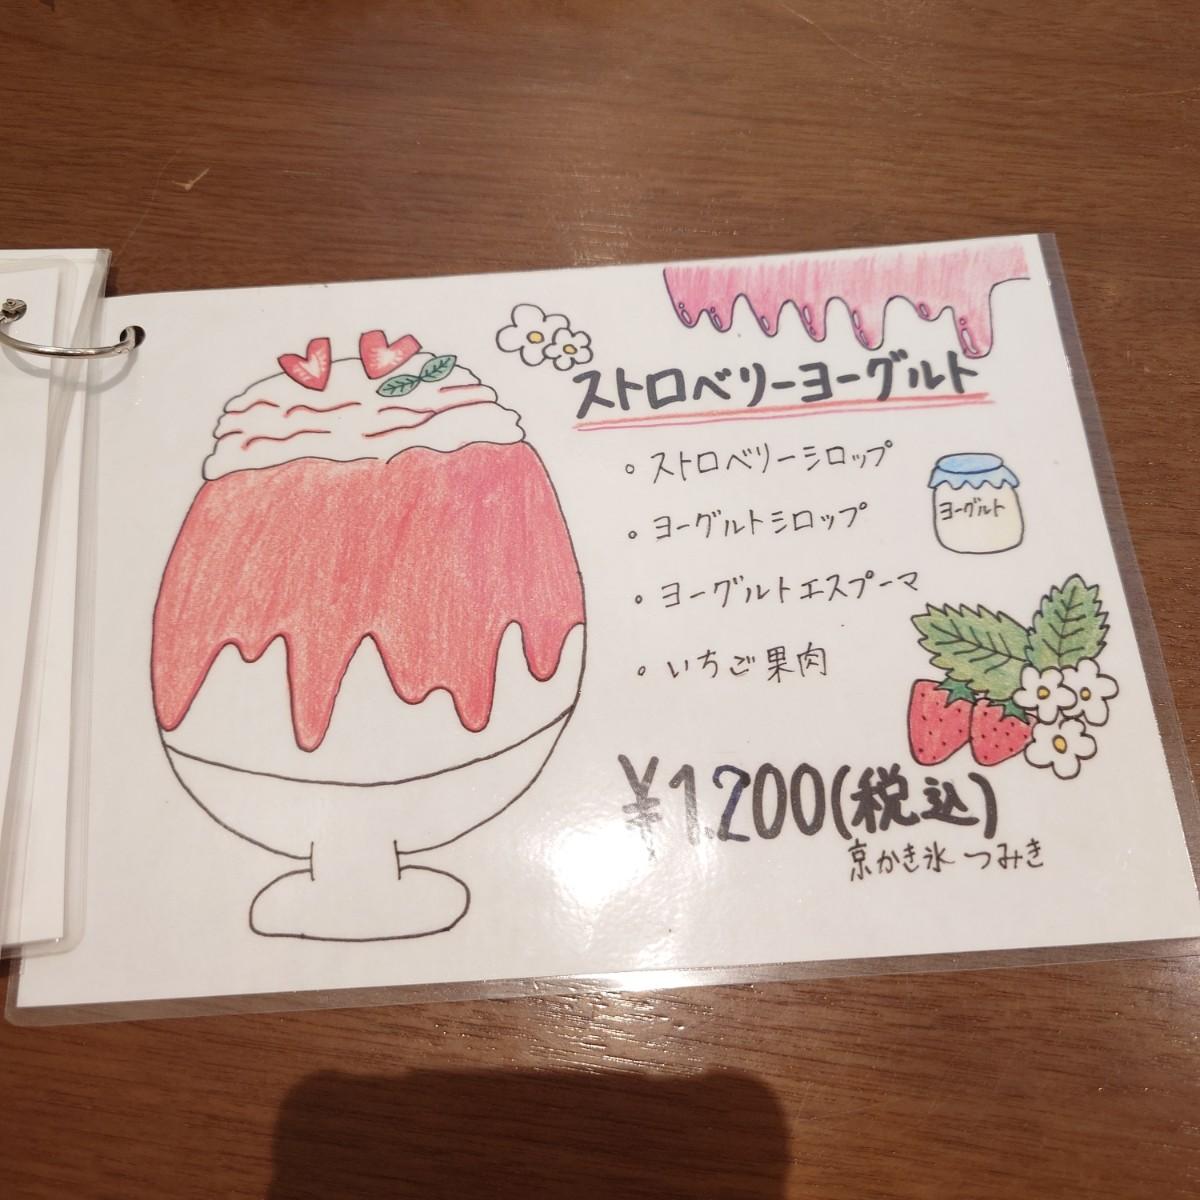 ストロベリーヨーグルト
。ストロベリーシロップ
。ヨーグルトシロップ
ヨーグルト
。ヨーグルトエスプーマ
。いちご果肉
¥1.200(税込)
京かき氷 つみき